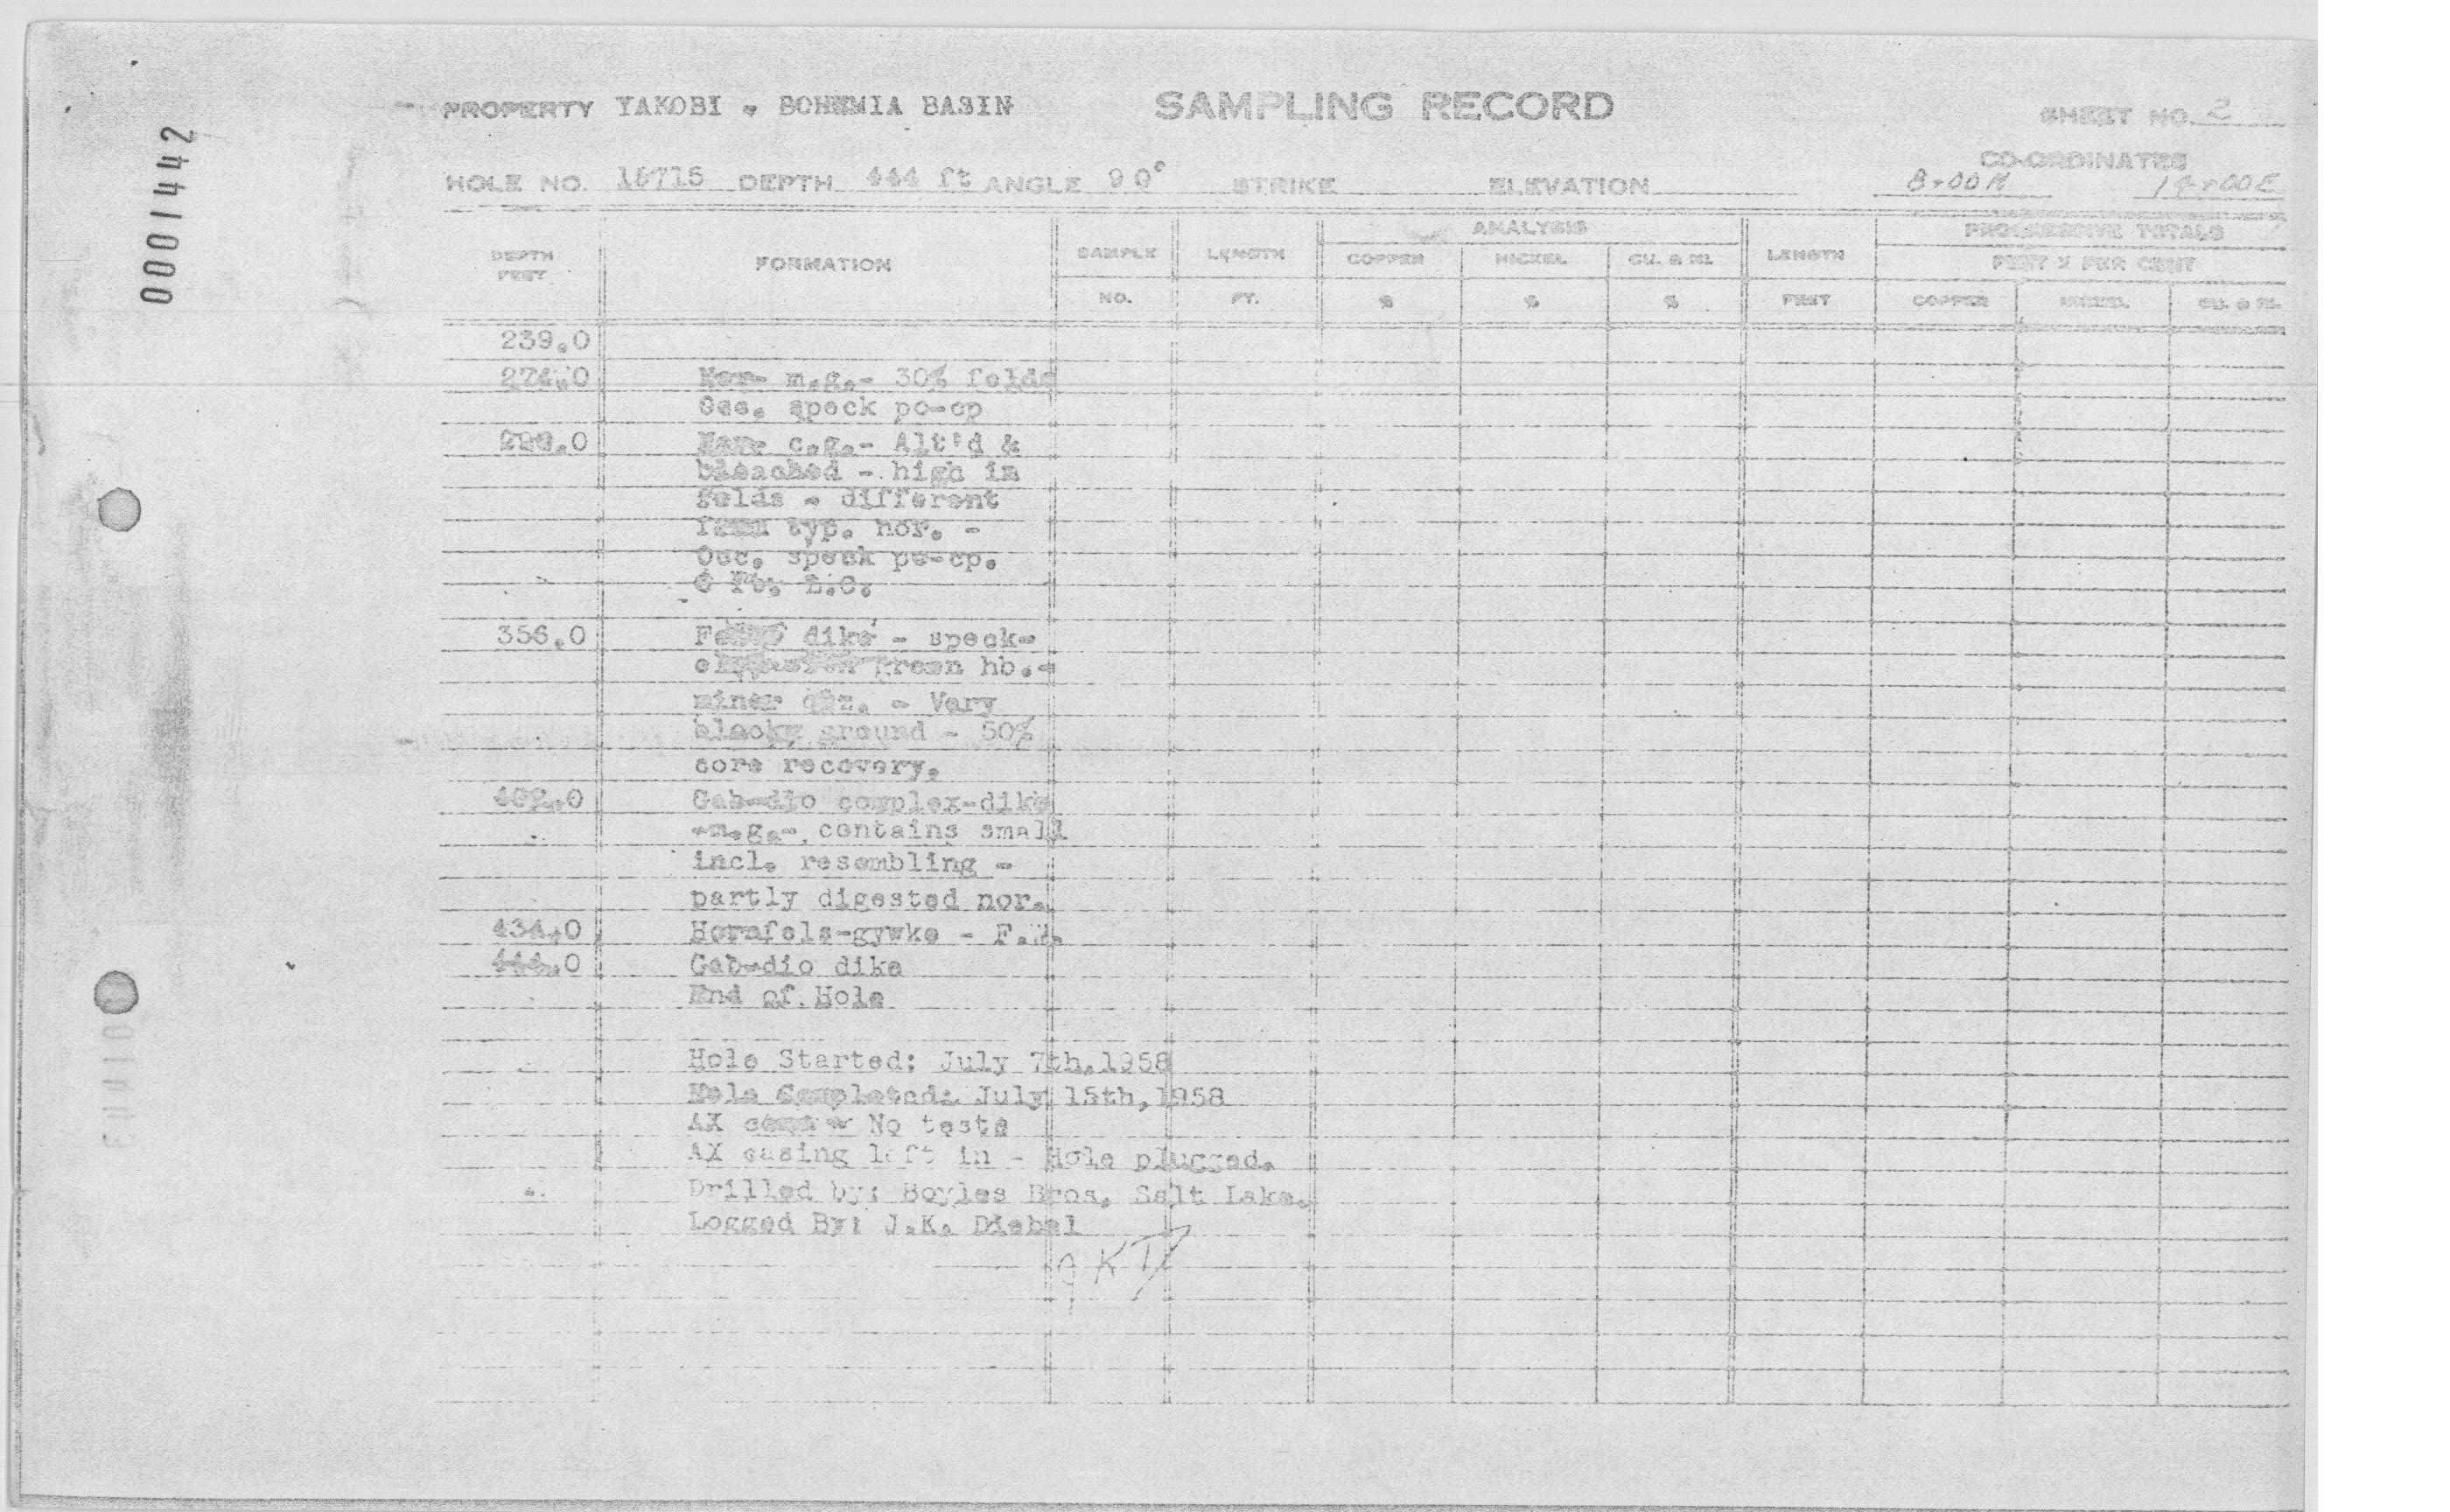 0001442
PROPERTY YAKOBI - BOHEMIA BASIN SAMPLING RECORD SHEET NO. 2
CO-ORDINATES
HOLE NO. 15715 DEPTH 444 ft ANGLE 90° STRIKE ELEVATION 8+00N
ANALYSIS
PROGRESSIVE TOTALS
DEPTH FORMATION SAMPLE LENGTH COPPER NICKEL CU. & NI. LENGTH FEET X PER CENT
FEET NO. FT. % % % FEET COPPER NICKEL CU. & NI.
239.0
274.0 Nor- m.g.- 30% felds
Occ. speck po-cp
299.0 Nor- c.g.- Alt'd &
bleached - high in
felds - different
from typ. nor. -
Occ. speck po-cp.
L.C.
356.0 dike - speck-
green hb.-
minor qtz. - Very
blocky ground - 50%
core recovery.
402.0 Gab-dio complex-dike
-m.g.- contains small
incl. resembling -
partly digested nor.
434.0 Hornfels-gywke - F.W.
444.0 Gab-dio dike
End of Hole
Hole Started: July 7th,1958
Hole Completed: July 15th,1958
AX core - No tests
AX casing left in - Hole plugged.
Drilled by: Boyles Bros, Salt Lake.
Logged By: J.K. Diebel
JKD